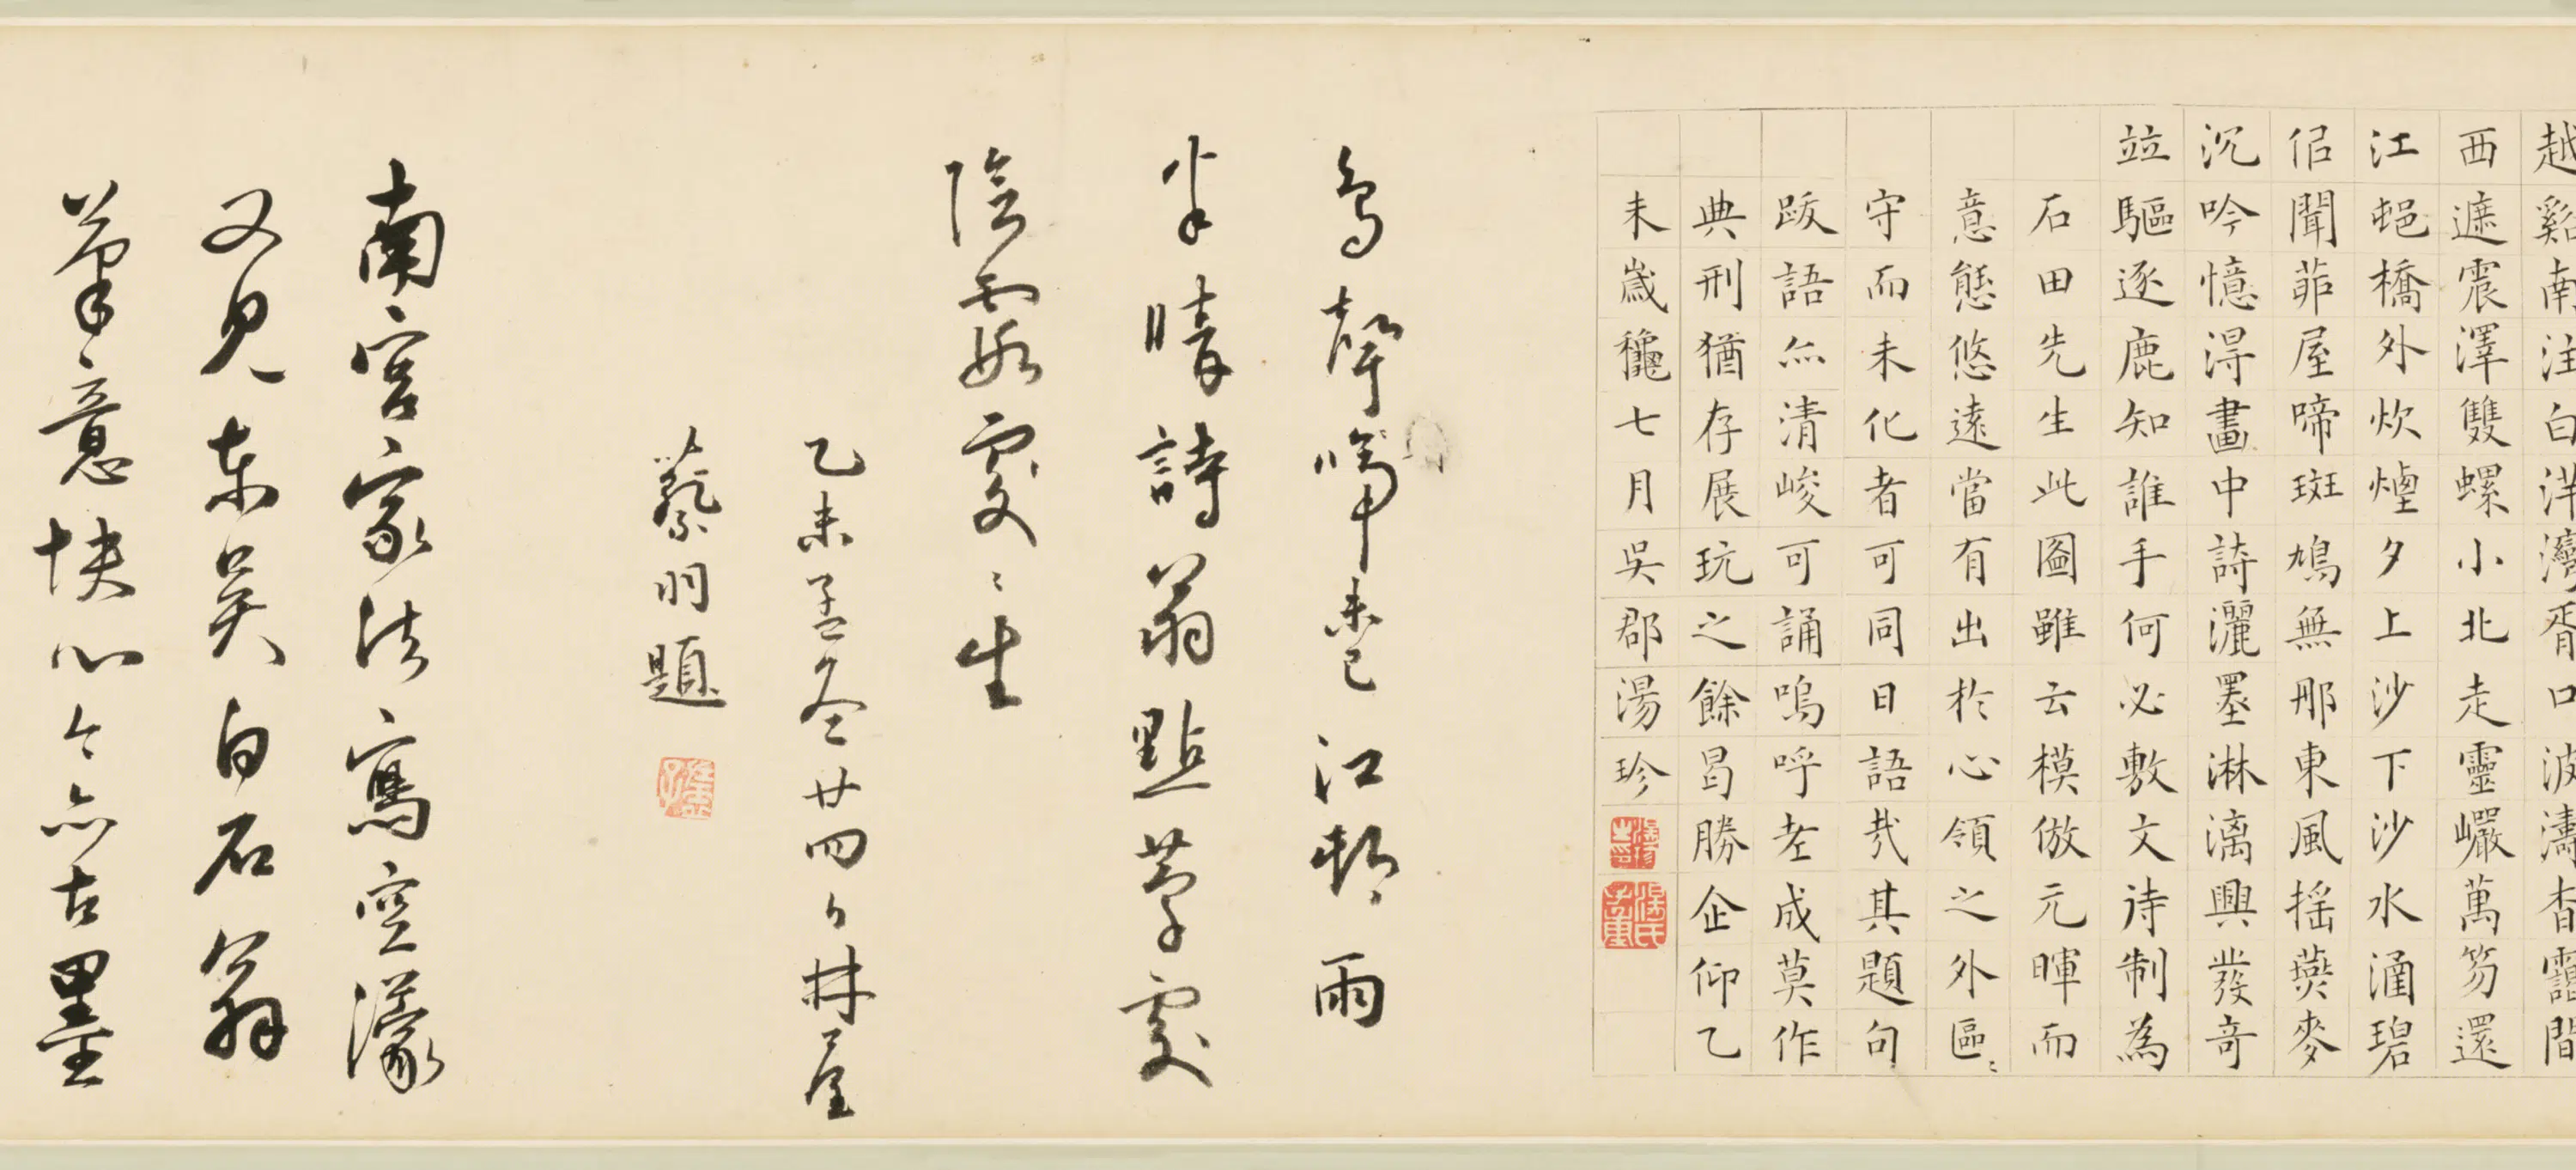 越谿南注白洋灣胥口波濤杳靄間
西遮震澤雙螺小北走靈巖萬笏還
江邨橋外炊煙夕上沙下沙水涵碧
佀聞茆屋啼斑鳩無那東風搖薐麥
沉吟憶淂畫中詩灑墨淋漓興發奇
竝驅逐鹿知誰手何必敷文待制為
石田先生此圖雖云模倣元暉而
意態悠遠當有出於心領之外區〻
守而未化者可同日語㢤其題句
跋語亦清峻可誦嗚呼老成莫作
典刑猶存展玩之餘曷勝企仰乙
未歲龝七月吳郡湯珍
鳥聲啼來已江郁雨
半晴詩翁點草處
陰霞處〻生
乙未孟冬廿四日林屋
蔡羽題
南宮家法寫空濛
又見東吳白石翁
筆意快心今亦古墨